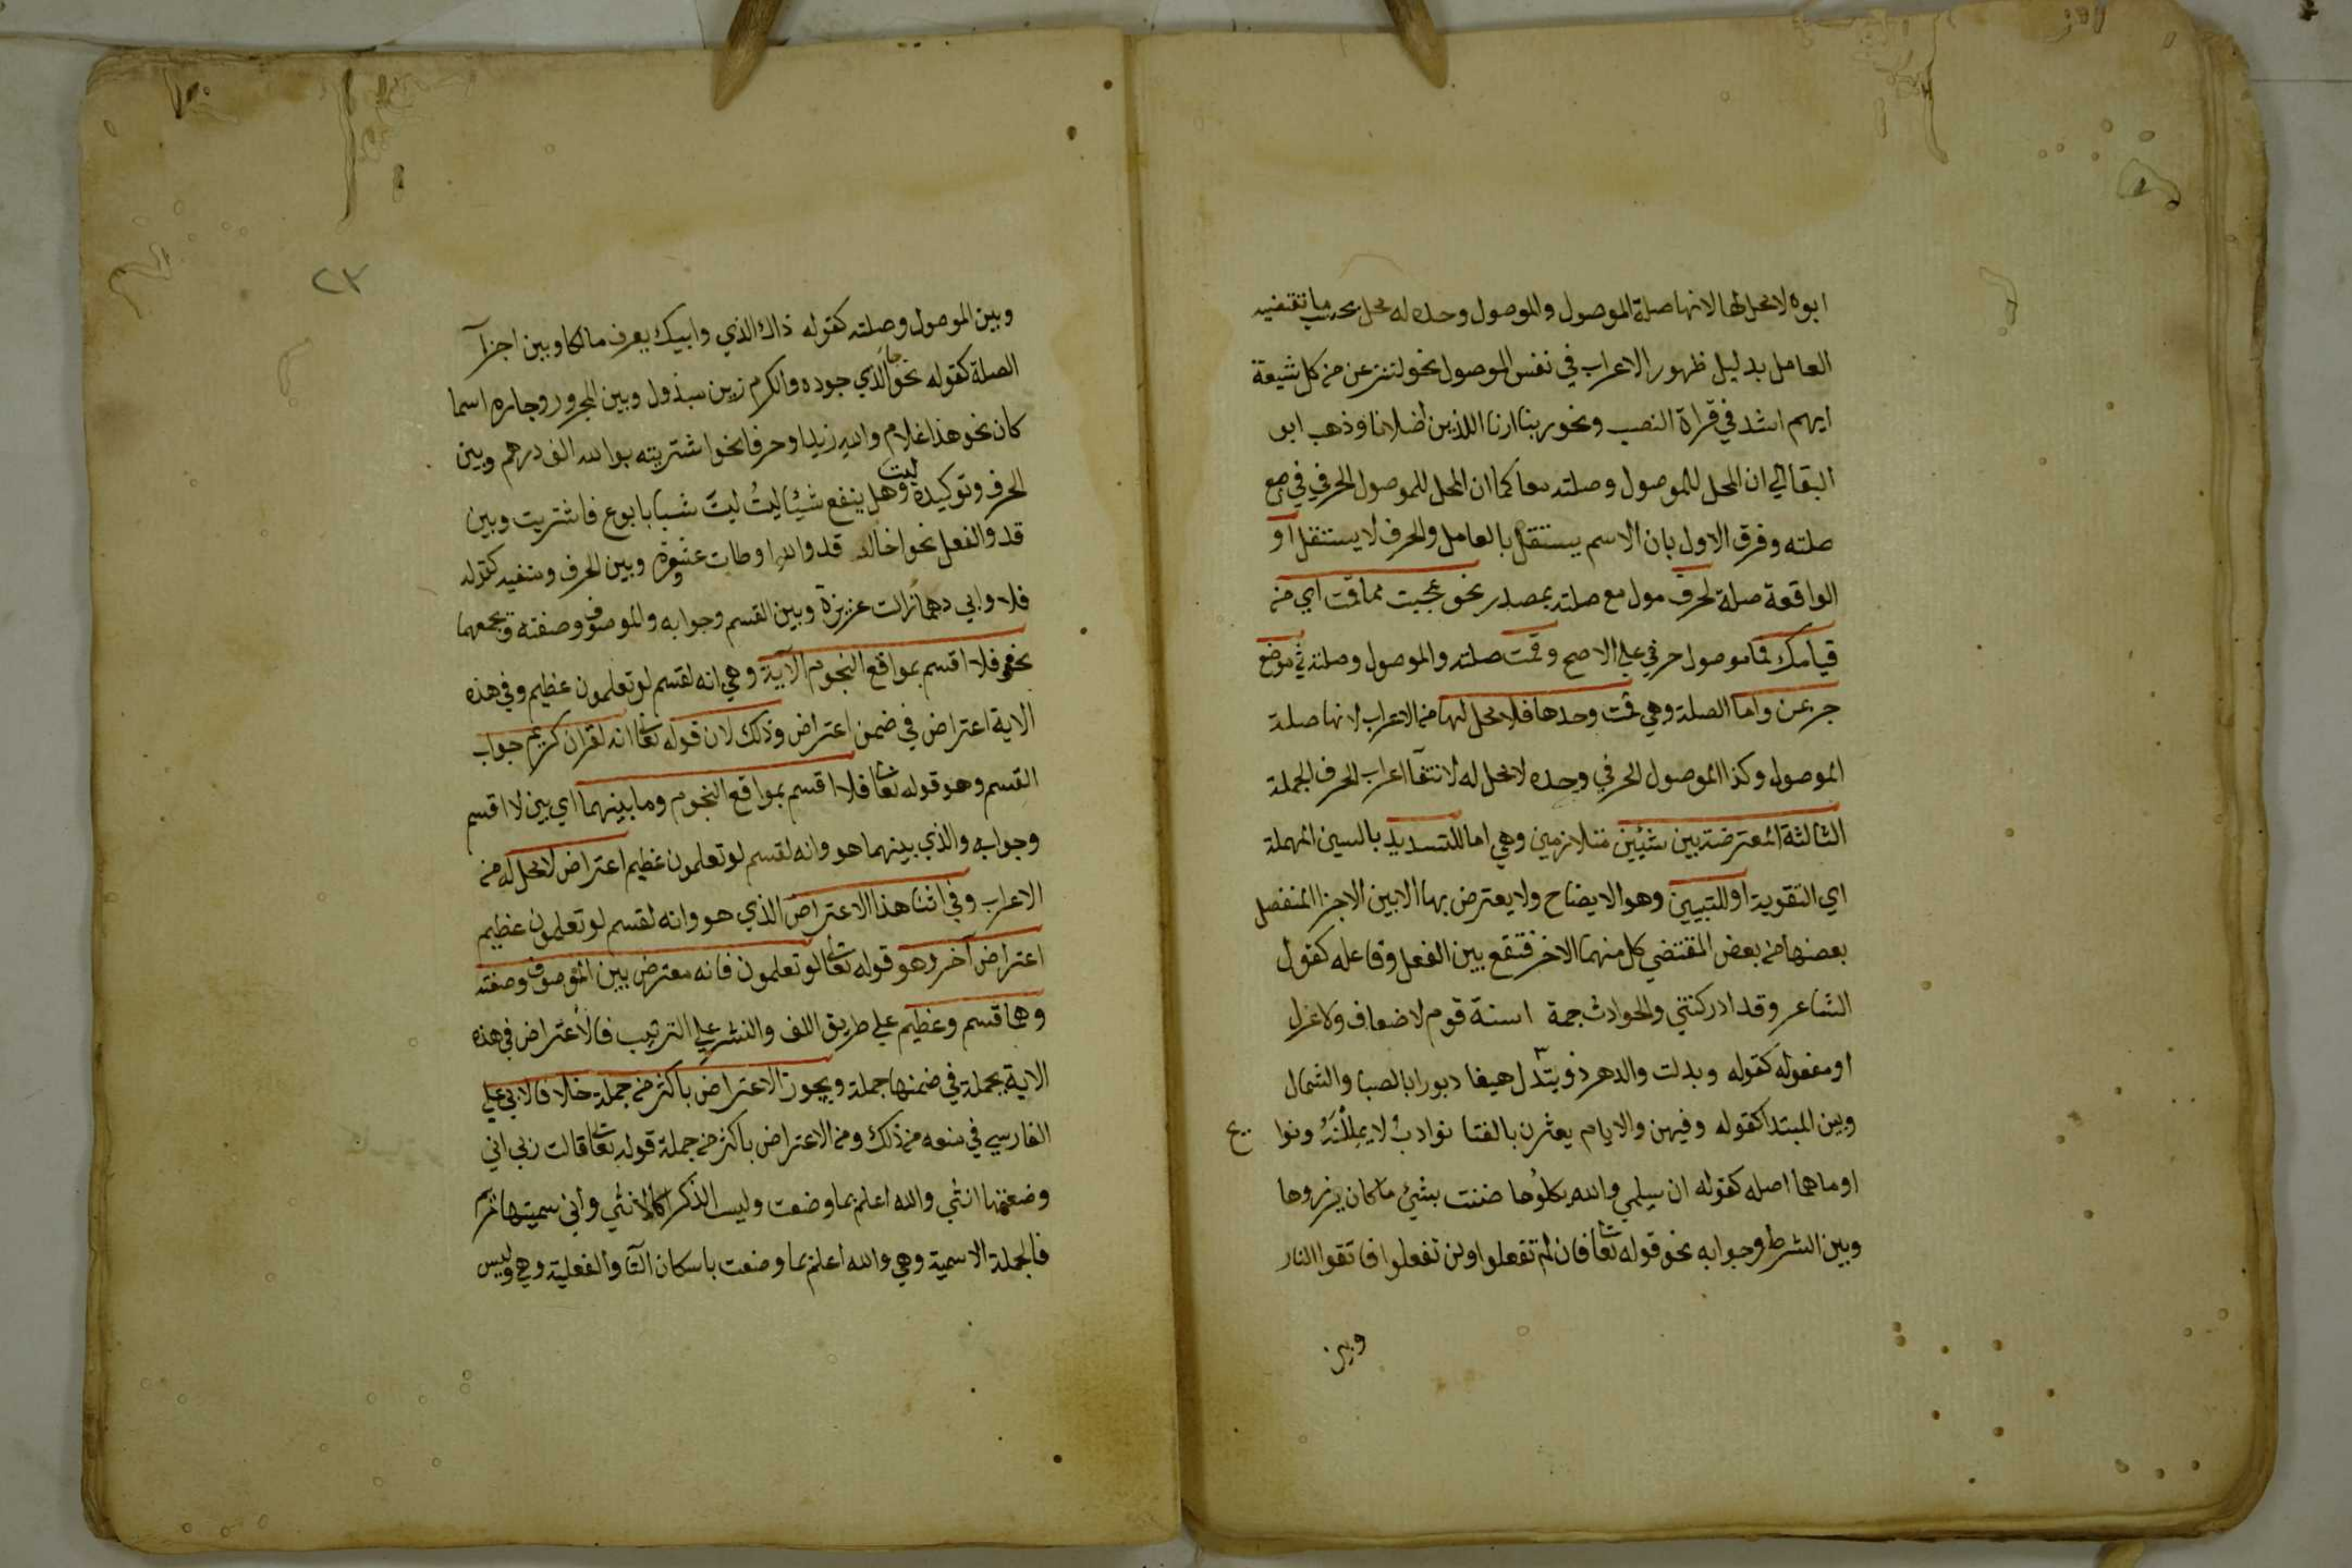 ابوه لا محل لها لانها صلة الموصول والموصول وحده له محل بحسب ما تقتضيه
العامل بدليل ظهور الاعراب في نفس الموصول نحو لننزعن من كل شيعة
ايهم اشد في قراة النصب ونحو ربنا ارنا اللذين اضلانا وذهب ابو
البقا الي ان المحل للموصول وصلته معا كما ان المحل للموصول الحرفي مع
صلته وفرق الاول بان الاسم يستقل بالعامل والحرف لا يستقل او
الواقعة صلة لحرف مول مع صلته بمصدر نحو عجبت مما قمت اي من
قيامك فما موصول حرفي علي الاصح وقمت صلته والموصول وصلته في موضع
جر بمن واما الصلة وهي قمت وحدها فلا محل لها من الاعراب لانها صلة
الموصول وكذا الموصول الحرفي وحده لا محل له لانتفآ اعراب الحرف الجملة
الثالثة المعترضة بين شيئين متلازمين وهي اما للتسديد بالسين المهملة
اي التقوية او للتبيين وهو الايضاح ولا يعترض بها الا بين الاجزا المنفصل
بعضها من بعض المقتضي كل منهما الاخر فتقع بين الفعل وفاعله كقول
الشاعر وقد ادركتني والحوادث جمة اسنة قوم لا ضعاف ولا عزل
او مفعوله كقوله وبدلت والدهر ذو تبدل هيفا دبورا بالصبا والشمال
وبين المبتدا كقوله وفيهن والايام يعثرن بالفتا نوادب لا يمللنه ونوا يح
او ما هما اصله كقوله ان سليمي والله يكلوها ضنت بشيئ ما كان يرزوها
وبين الشرط وجوابه نحو قوله تعا فان لم تفعلوا ولن تفعلوا فاتقوا النار
وبين
٢٣
وبين الموصول وصلته كقوله ذاك الذي وابيك يعرف مالكا وبين اجزآ
الصلة كقوله نحو الذي جوده والكرم زين مبذول وبين المجرور وجاره اسما
كان نحو هذا غلام والله زيد او حرفا نحو اشتريته بوالله الف درهم وبين
الحرف وتوكيده ليت وهل ينفع شيئا ليت ليت شبابا بوع فاشتريت وبين
قد والفعل نحو اخالد قد والله اوطات عشوة وبين الحرف ومنفيه كقوله
فلا وابي دهما زالت عزيزة وبين القسم وجوابه والموصوف وصفته ويجمعهما
نحو فلا اقسم بمواقع النجوم الآية وهي انه لقسم لو تعلمون عظيم وفي هذه
الاية اعتراض في ضمن اعتراض وذلك لان قوله تعا انه لقران كريم جواب
القسم وهو قوله تعا فلا اقسم بمواقع النجوم وما بينهما اي بين لا اقسم
وجوابه والذي بينهما هو وانه لقسم لو تعلمون عظيم اعتراض لا محل له من
الاعراب وفي اثنا هذا الاعتراض الذي هو وانه لقسم لو تعلمون عظيم
اعتراض آخر وهو قوله تعا لو تعلمون فانه معترض بين الموصوف وصفته
وهما قسم وعظيم علي طريق اللف والنشر علي الترتيب فالاعتراض في هذه
الاية بجملة في ضمنها جملة ويجوز الاعتراض باكثر من جملة خلافا لابي علي
الفارسي في منعه من ذلك ومن الاعتراض باكثر من جملة قوله تعا قالت ربي اني
وضعتها انثي والله اعلم بما وضعت وليس الذكر كالانثي واني سميتها مريم
فالجملة الاسمية وهي والله اعلم بما وضعت باسكان التا والفعلية وهي وليس